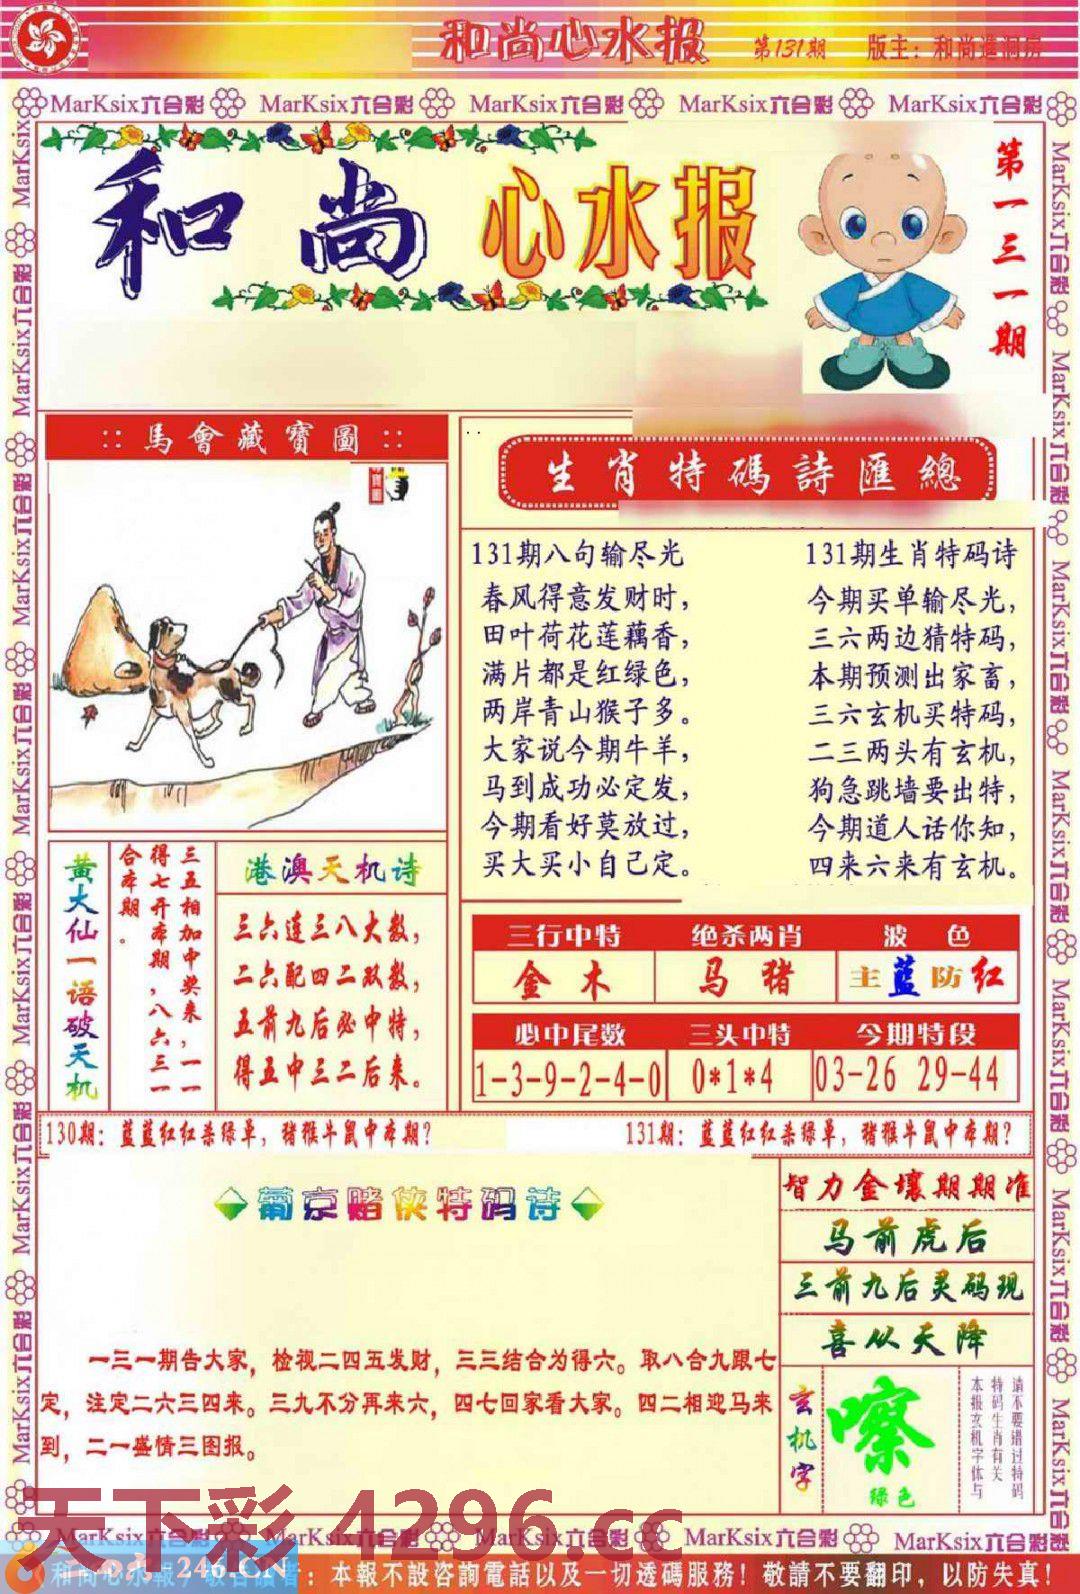 和尚心水报 第131期 版主：和尚進洞房
MarKsix六合彩 MarKsix六合彩 MarKsix六合彩 MarKsix六合彩 MarKsix六合彩
和尚 心水报
第一三一期
:: 馬會藏寶圖 ::
生肖特碼詩匯總
131期八句输尽光
春风得意发财时，
田叶荷花莲藕香，
满片都是红绿色，
两岸青山猴子多。
大家说今期牛羊，
马到成功必定发，
今期看好莫放过，
买大买小自己定。
131期生肖特码诗
今期买单输尽光，
三六两边猜特码，
本期预测出家畜，
三六玄机买特码，
二三两头有玄机，
狗急跳墙要出特，
今期道人话你知，
四来六来有玄机。
黄大仙一语破天机
三五相加中奖来，一一
得七开本期，八六三一
合本期。
港澳天机诗
三六连三八大数，
二六配四二双数，
五前九后必中特，
得五中三二后来。
三行中特 绝杀两肖 波 色
金 木 马 猪 主蓝防红
必中尾数 三头中特 今期特段
1-3-9-2-4-0 0*1*4 03-26 29-44
130期：蓝蓝红红杀绿单，猪猴牛鼠中本期？
131期：蓝蓝红红杀绿单，猪猴牛鼠中本期？
葡京赌侠特码诗
一三一期告大家，检视二四五发财，三三结合为得六。取八合九跟七
定，注定二六三四来。三九不分再来六，四七回家看大家。四二相迎马来
到，二一盛情三图报。
智力金壤期期准
马前虎后
三前九后灵码现
喜从天降
玄机字
嚓
绿色
请不要错过特码
特码生肖有关
本报玄机字体与
天下彩 4296.cc
MarKsix六合彩 MarKsix六合彩 MarKsix六合彩 MarKsix六合彩 MarKsix六合彩
二四六 246.CN
：本報不設咨詢電話以及一切透碼服務！敬請不要翻印，以防失真！